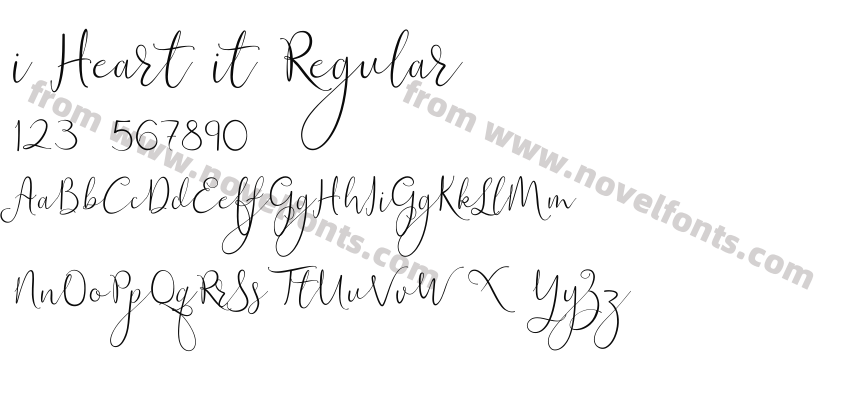 i Heart it Regular
123 567890
AaBbCcDdEeffGgHhIiGgKkLlMm
NnOoPpQqRrSs TtUuVvW X YyZz
from www.novelfonts.com
from www.novelfonts.com